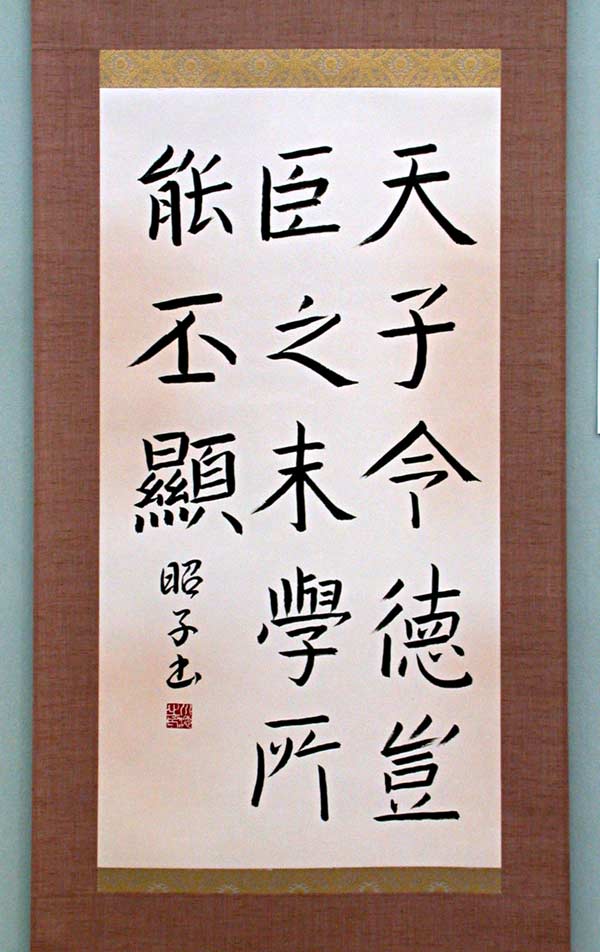 天子令德豈
臣之末學所
能丕顯
昭子书